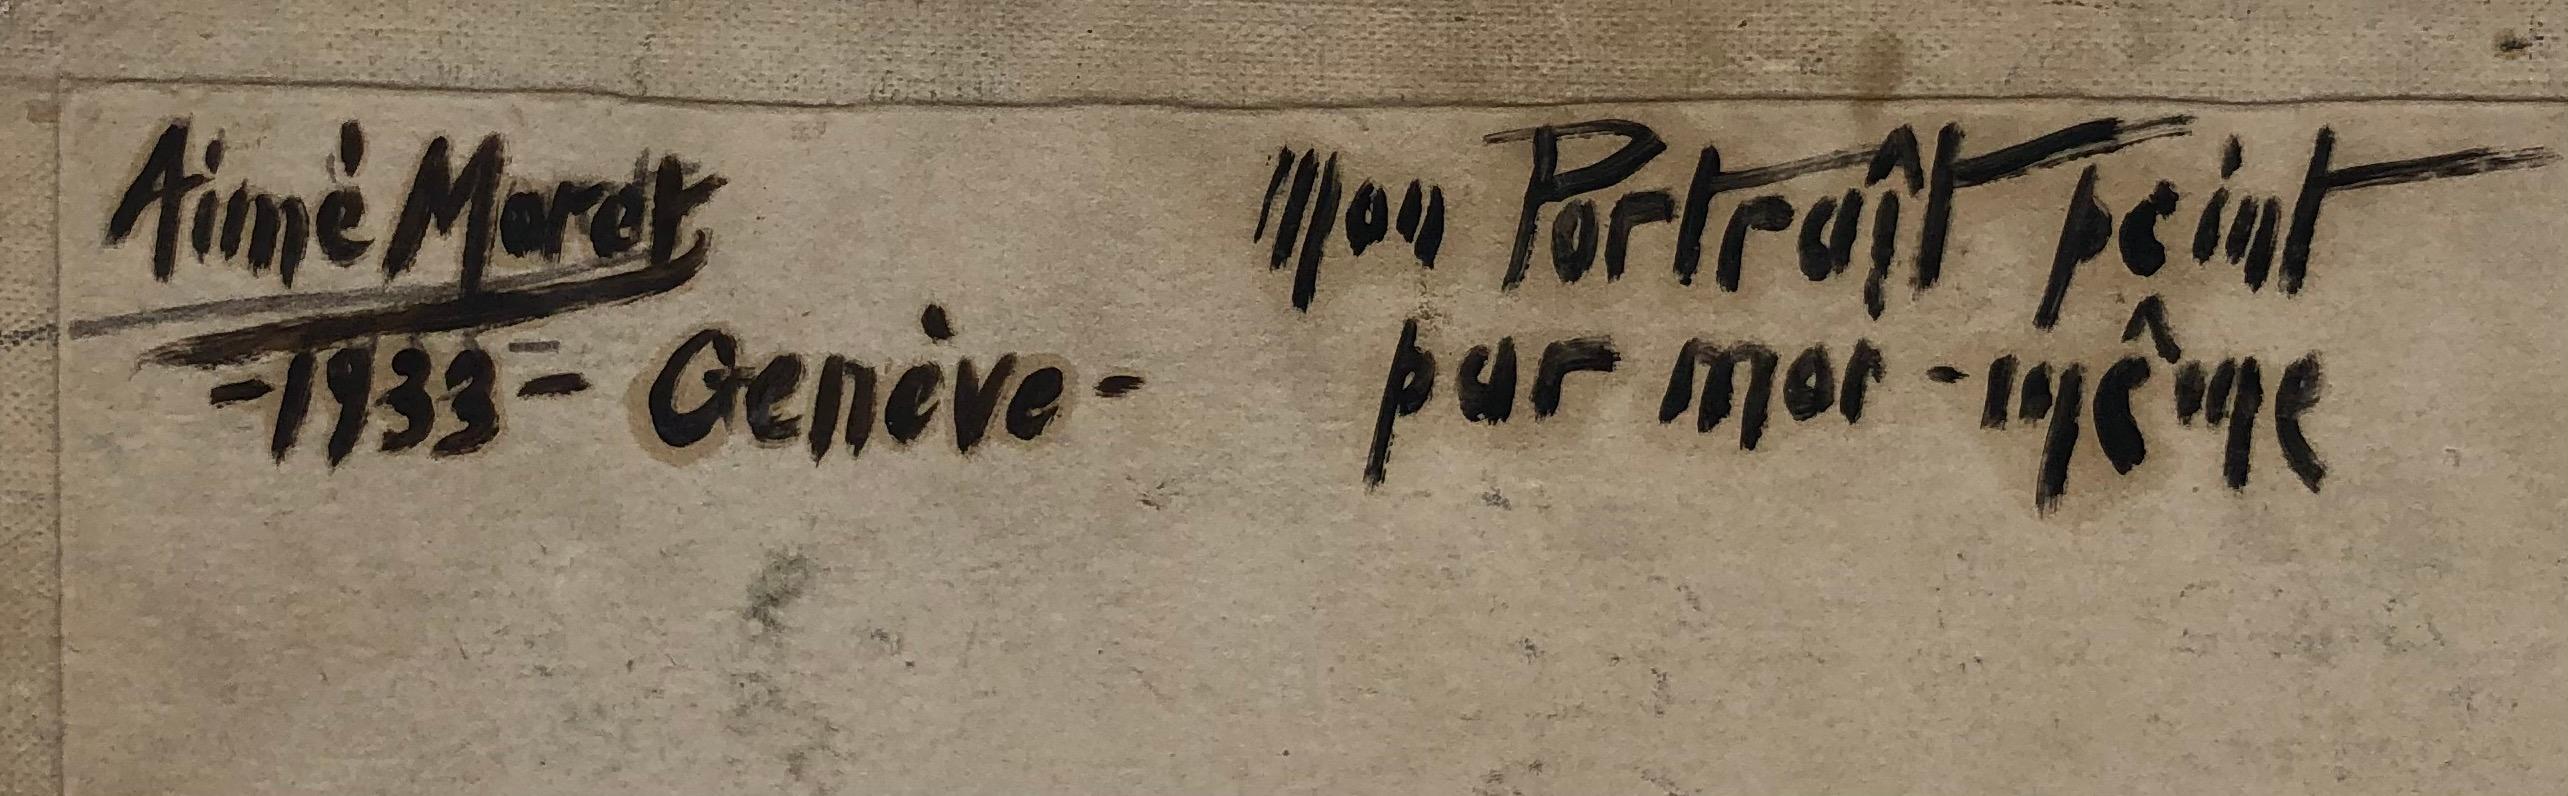 Aimé Moret
-1933- Genève-
Mon Portraît peint
par moi-même